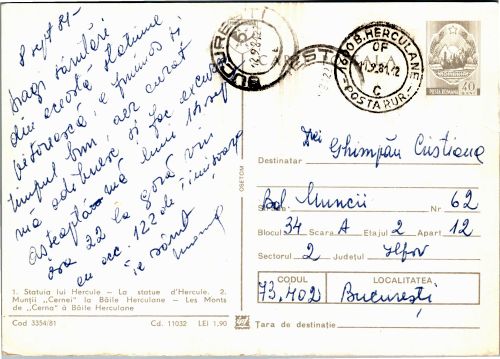 8 sept 81-
Dragi sănătări
din această stațiune
pitorească, e frumos și
timpul bun, aer curat
mă odihnesc și fac excursii
așteaptă-mă luni 14 sept
ora 22 la gară vin
cu acc. 122 de Timișoara
te sărut
1. Statuia lui Hercule — La statue d'Hercule. 2.
Munții „Cernei" la Băile Herculane — Les Monts
de „Cerna" à Băile Herculane
Cod 3354/81 Cd. 11032 LEI 1,90
OSETCM
BUCUREȘTI
1600 B. HERCULANE
OF
.9.81.12
C
POSTA RUR.
POSTA ROMANA 40
Destinatar Ghimpău Cristiana
Bd. Muncii Nr 62
Blocul 34 Scara A Etajul 2 Apart 12
Sectorul 2 Județul Ilfov
CODUL LOCALITATEA
73.402 București
Țara de destinație